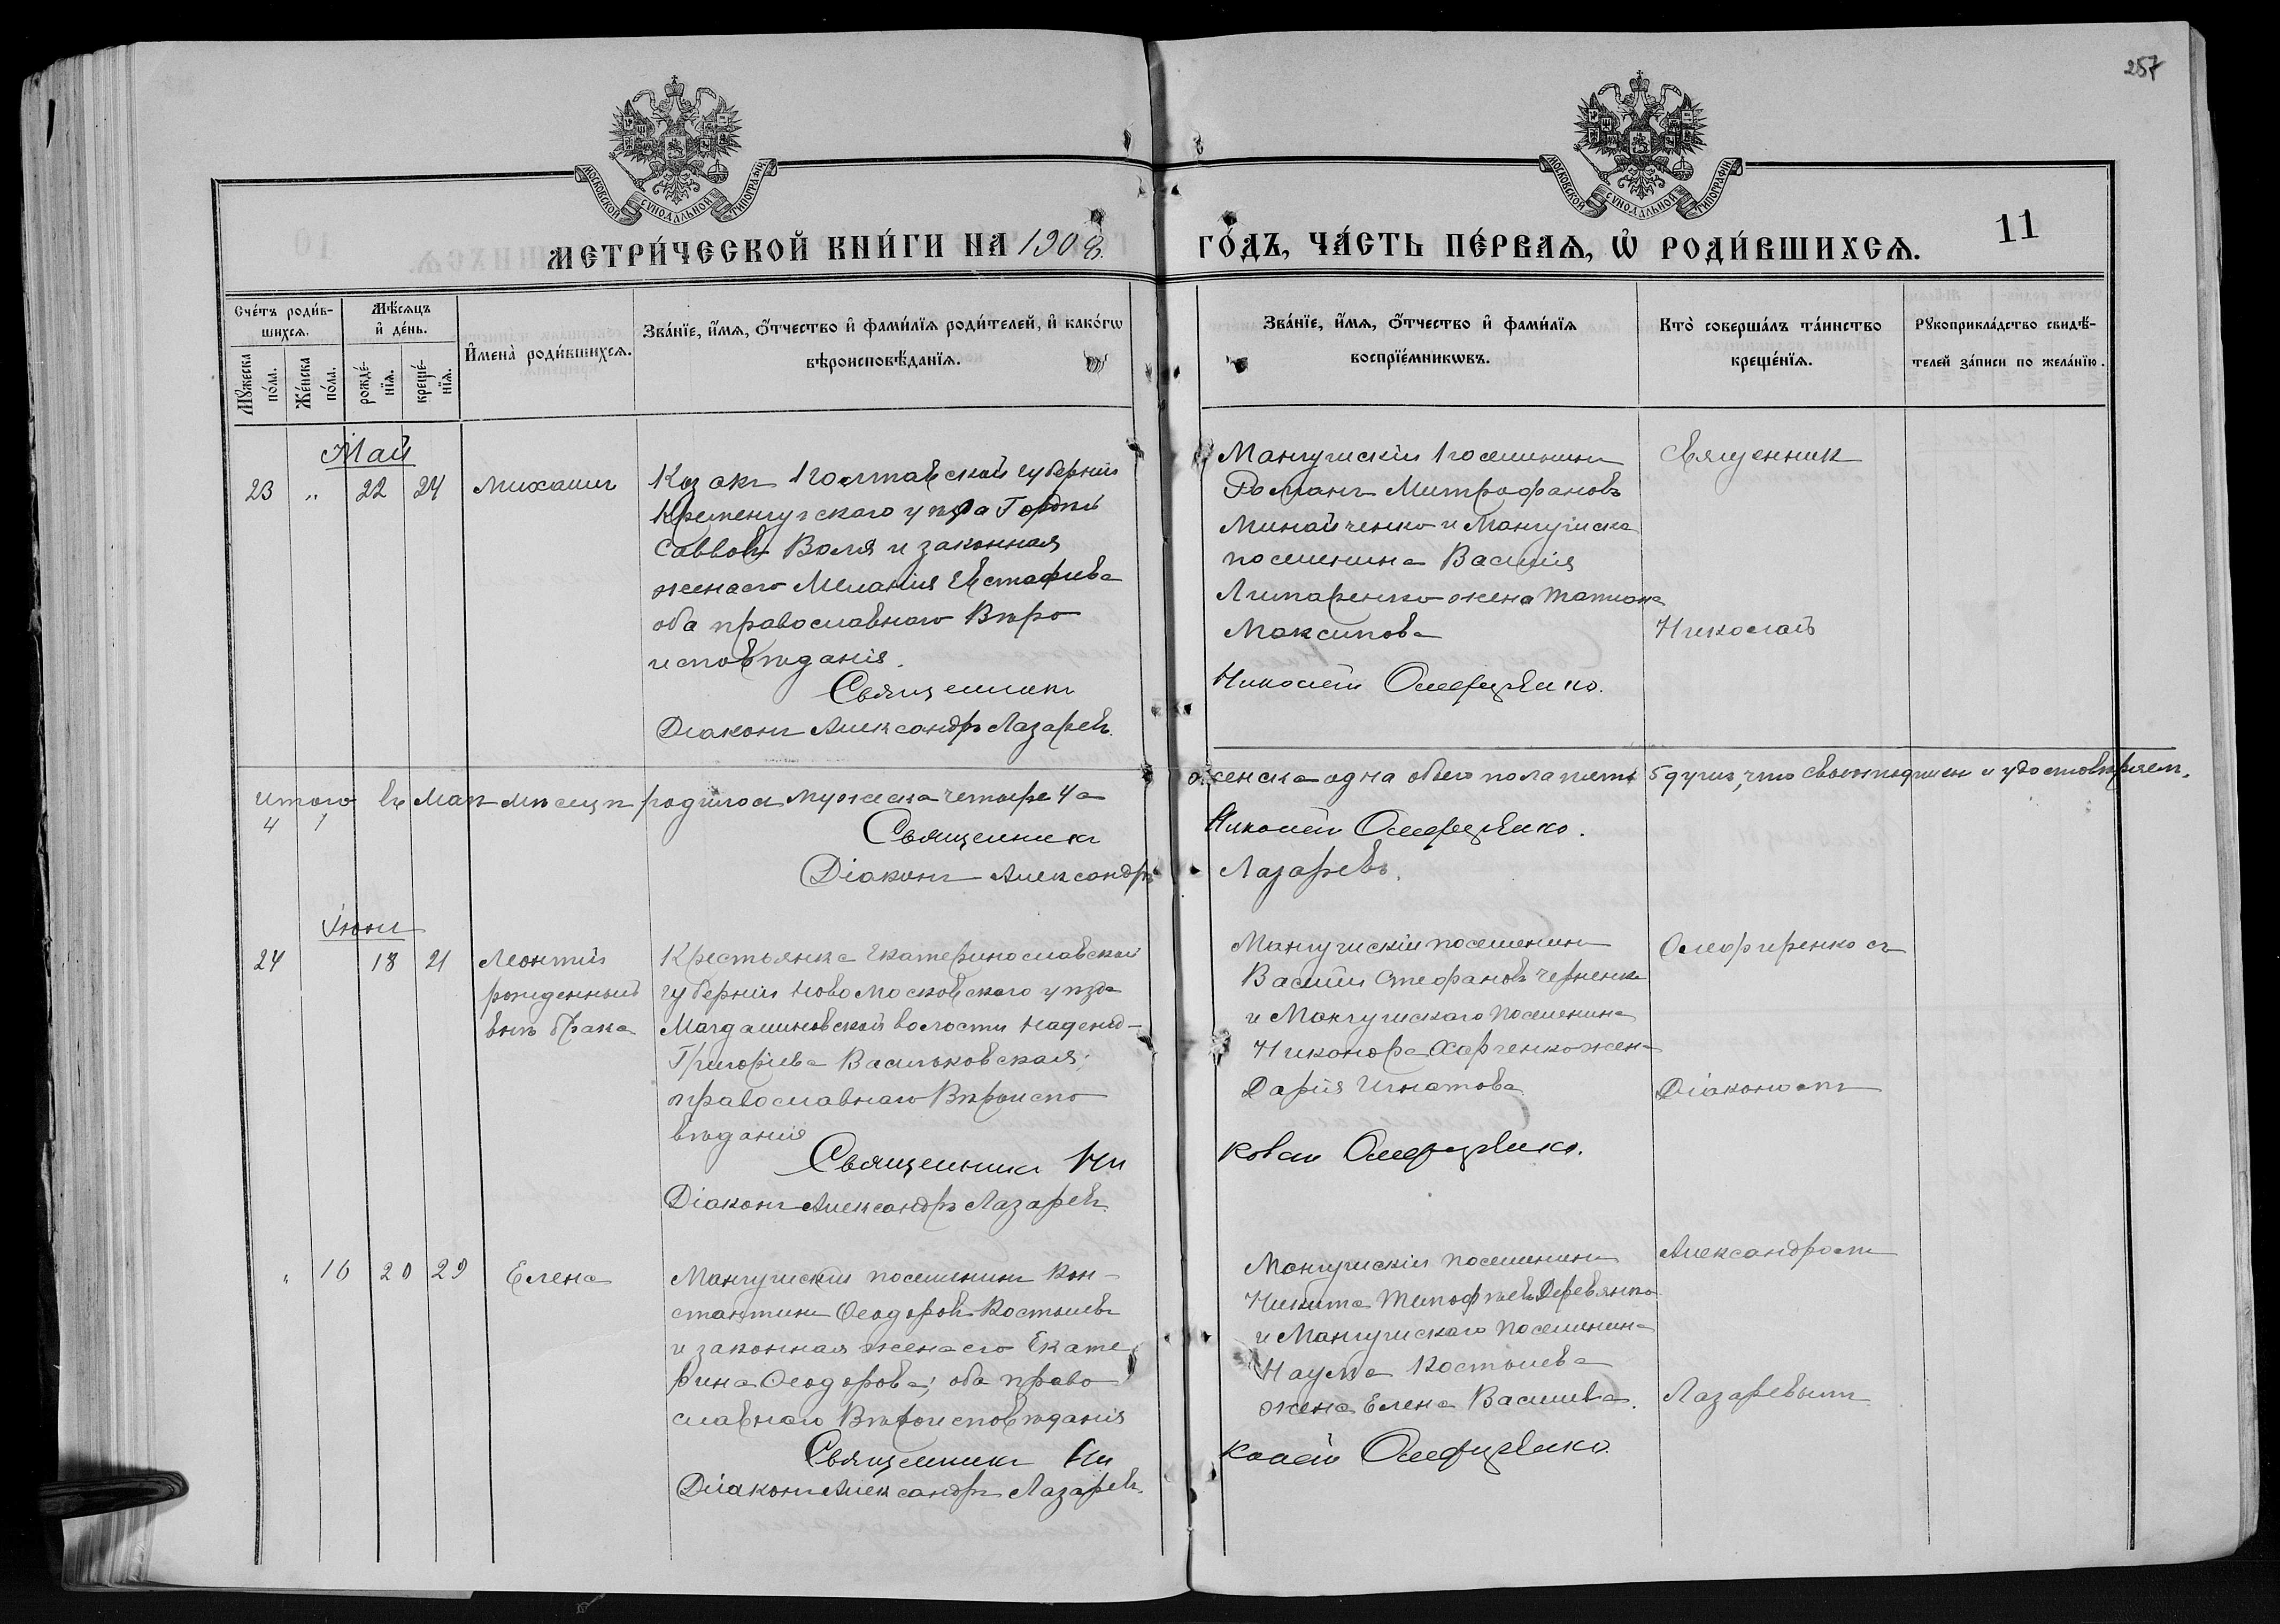 257
МОСКОВСКОЙ СѴНОДАЛЬНОЙ ТИПОГРАФІИ
МОСКОВСКОЙ СѴНОДАЛЬНОЙ ТИПОГРАФІИ
МЕТРИ́ЧЕСКОЙ КНИ́ГИ НА 1908
ГО́ДЪ, ЧА́СТЬ ПЕ́РВАѦ, Ѡ҆ РОДИ́ВШИХСѦ. 11
Сче́тъ роди́в-
шихсѧ.
Мꙋ́жеска по́ла.
Же́нска по́ла.
Мѣ́сѧцъ
и҆ де́нь.
рожде́-
нїѧ.
креще́-
нїѧ.
И҆мена̀ роди́вшихсѧ.
Зва́нїе, и҆́мѧ, ѻ҆́тчество и҆ фами́лїѧ роди́телей, и҆ како́гѡ
вѣроисповѣ́данїѧ.
Зва́нїе, и҆́мѧ, ѻ҆́тчество и҆ фами́лїѧ
воспрїе́мникѡвъ.
Кто̀ соверша́лъ та́инство
креще́нїѧ.
Рꙋкоприкла́дство свидѣ́-
телей за́писи по жела́нїю.
Май
23 " 22 24 Михаилъ
Козакъ Полтавской губерніи
Кременчугскаго уѣзда Гордѣй
Саввовъ Воля и законная
жена его Меланія Евстафиева
оба православнаго Вѣро
исповѣданія.
Священникъ
Діаконъ Александръ Лазаревъ.
Мангушскій поселянинъ
Романъ Митрофановъ
Минайченко и Мангушска
поселянина Василія
Литаренко жена Татиана
Максимова
Николай Олефиренко.
Священник
Николай
Итого въ Маѣ мѣсяцѣ родилось мужеска четыре 4 а
4 1
женска одна обоего пола пять 5 душъ, что свидѣтельствуемъ и удостовѣряем.
Священникъ
Николай Олефиренко.
Діаконъ Александръ
Лазаревъ.
Іюнь
24 18 21 Леонтій
рожденный
внѣ брака
Крестьянка Екатеринославской
губерніи Новомосковского уѣзда
Магдалиновской волости Надежда
Григориева Васильковская;
православнаго Вѣроиспо
вѣданія
Священникъ Ни
Діаконъ Александръ Лазаревъ.
Мангушскій поселянинъ
Василій Стефановъ Черненко
и Мангушскаго Поселянина
Никанора Харченко жена
Дарія Игнатова
колай Олефиренко.
Олефиренко съ
Діакономъ
" 16 20 29 Елена
Мангушскій поселянинъ Кон-
стантинъ Ѳеодоровъ Костылевъ
и законная жена его Екате
рина Ѳеодорова; оба право
славнаго Вѣроисповѣданія
Священникъ Ни
Діаконъ Александръ Лазаревъ.
Мангушскій поселянинъ
Никита Тимофѣевъ Деревянко
и Мангушскаго Поселянина
Наума Костылева
жена Елена Василиева.
колай Олефиренко.
Александромъ
Лазаревымъ